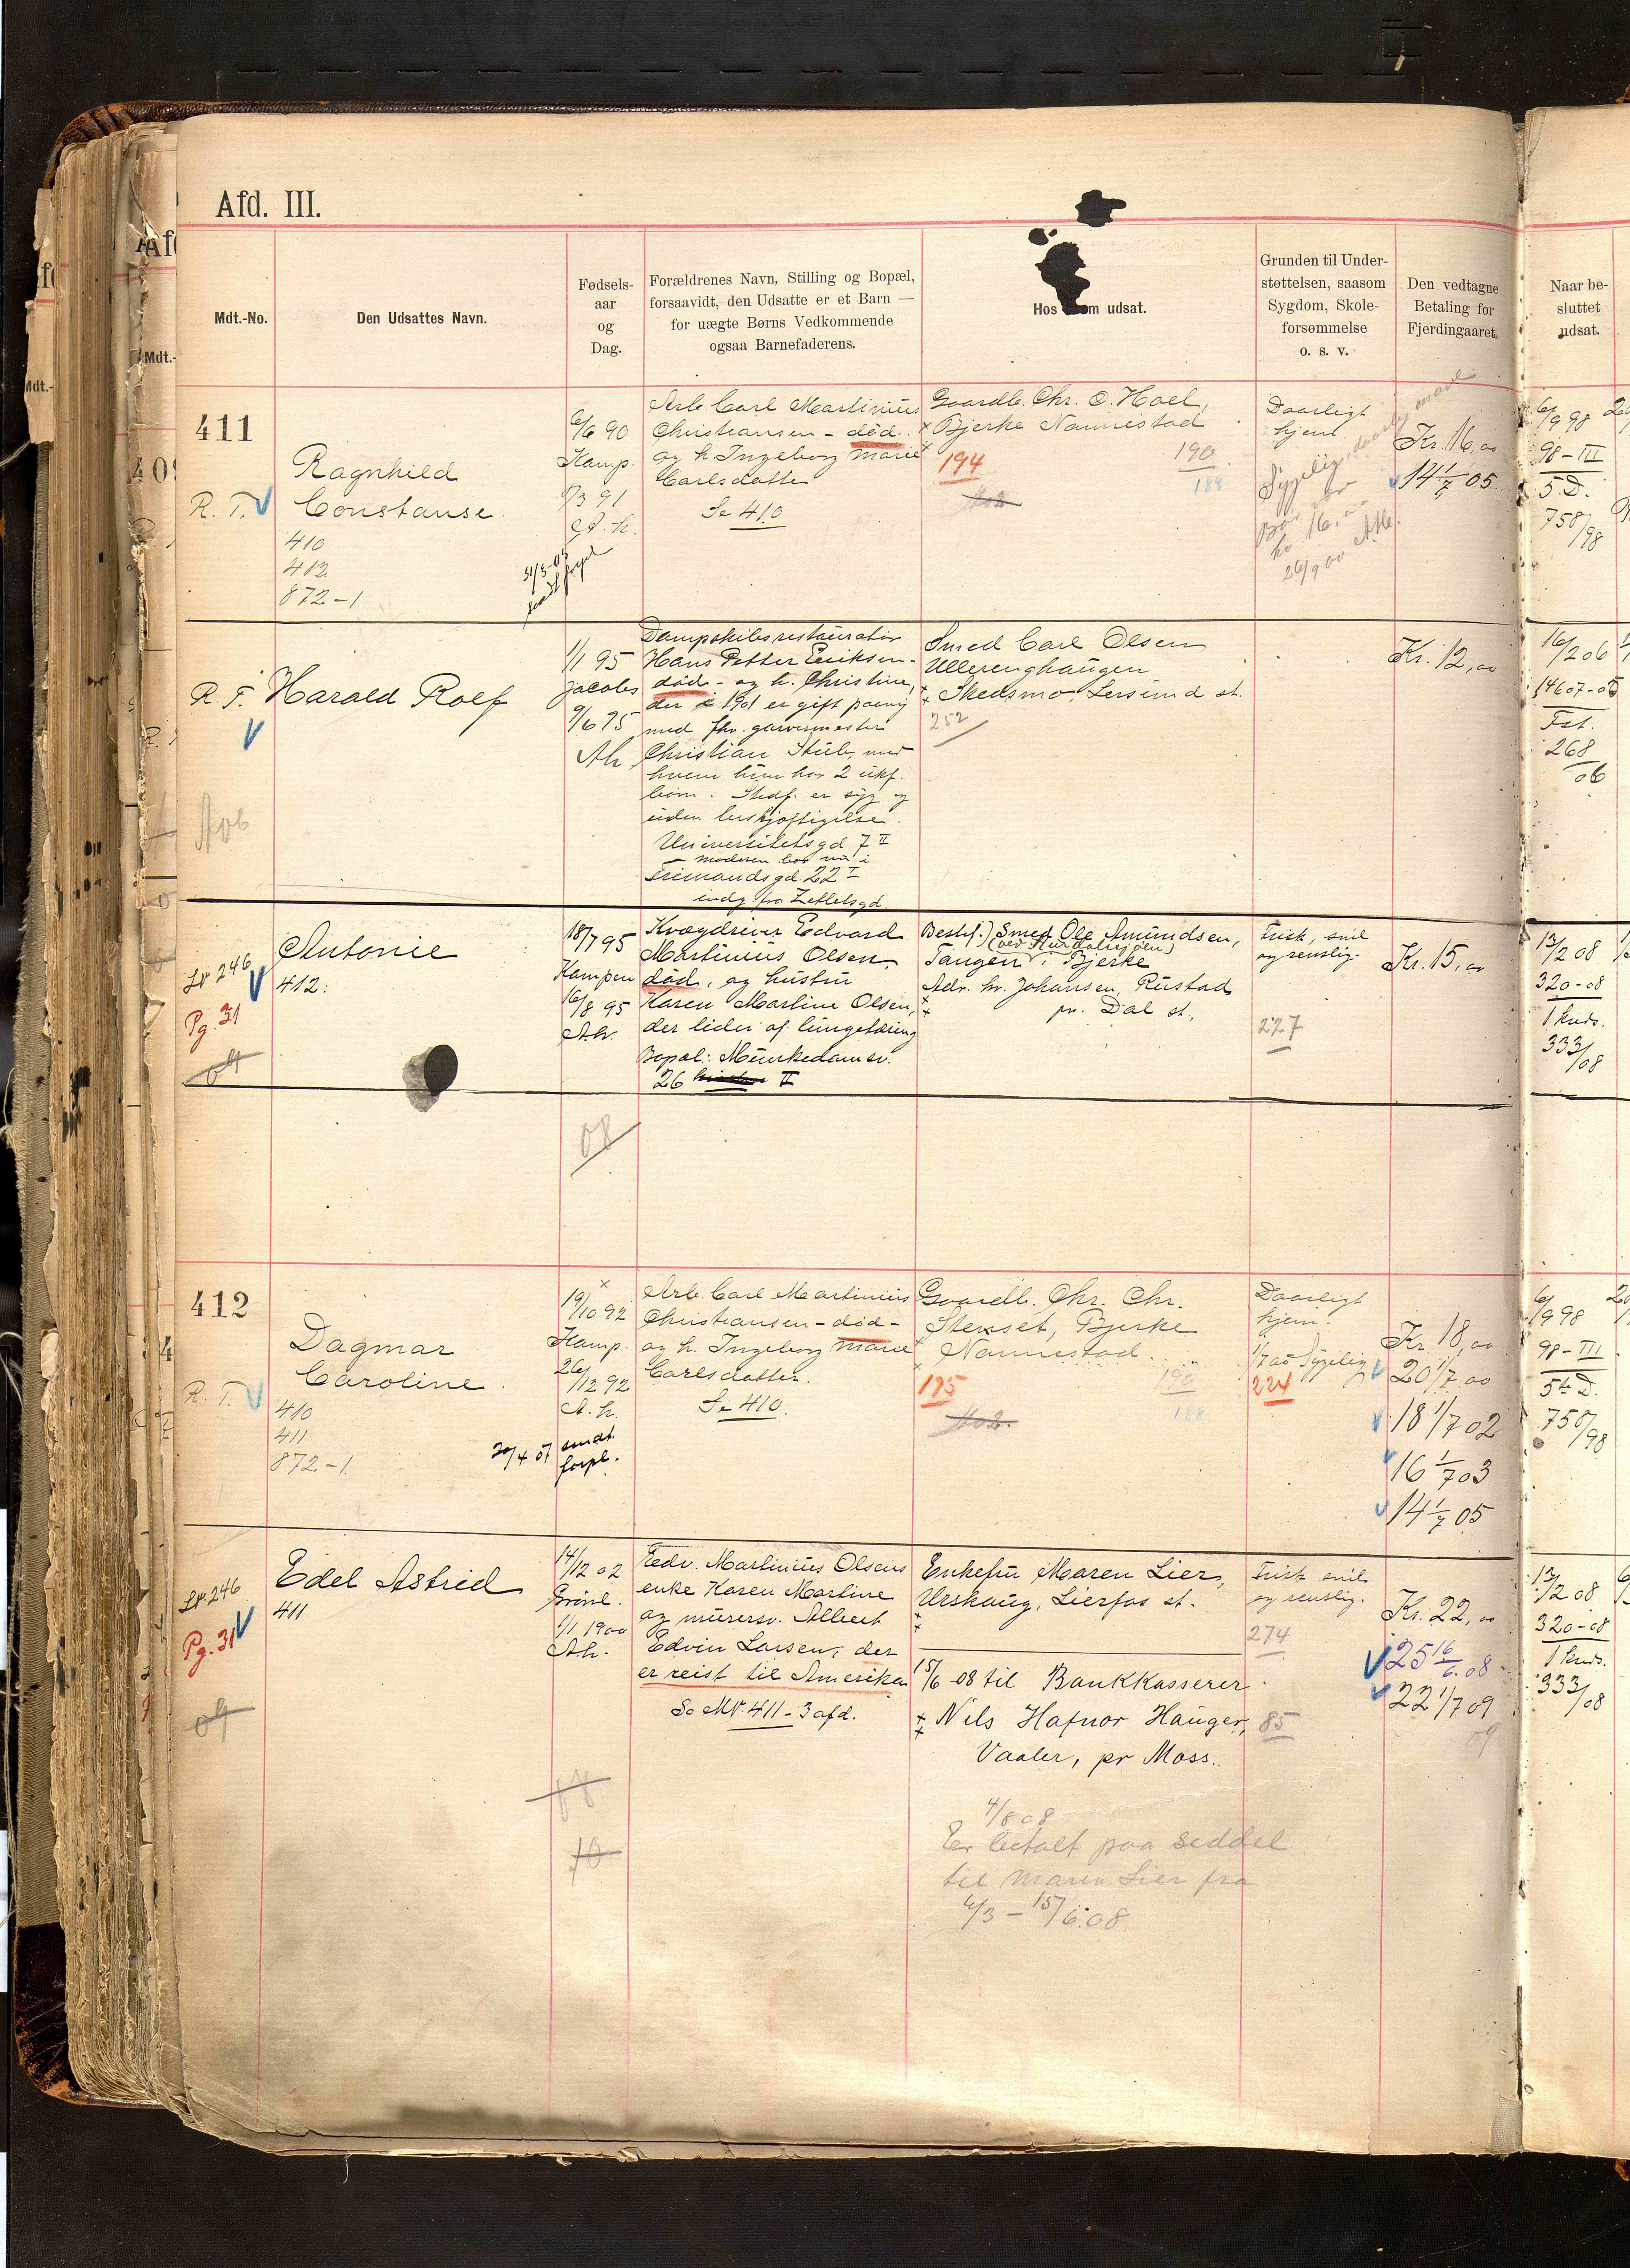 Afd. III.
Mdt.-No.
Den Udsattes Navn.
Fødsels-
aar
og
Dag.
Forældrenes Navn, Stilling og Bopæl,
forsaavidt, den Udsatte er et Barn —
for uægte Børns Vedkommende
ogsaa Barnefaderens.
Hos m udsat.
Grunden til Under-
støttelsen, saasom
Sygdom, Skole-
forsømmelse
o. s. v.
Den vedtagne
Betaling for
Fjerdingaaret.
Naar be-
sluttet
udsat.
411
R. T.
Ragnhild
Constanse
410
412
872-1
6/6 90
Kamp.
91
A. h.
Arb. Carl Martinius
Christiansen - død.
og h. Ingeborg Marie
Carlsdatter
Se 410
Gaardb. Chr. O. Hoel,
Bjerke Nannestad
194
190
188
Daarligt
hjem.
Sygelig,
16.
26/9 00
Kr. 16,00
14 1/7 05
6/9 98
98-III
5 D.
758/98
R. T.
Harald Rolf
1/1 95
Jacobs
9/6 75
Ah
Dampskibsrestauratør
Hans Petter Eriksen -
død - og h. Christine,
der i 1901 er gift paany
med fhv. garvermester
Christian Stub, med
hvem hun har 2 ukf.
børn. Stedf. er syg og
uden beskjæftigelse.
Universitetsgd 7 II
moderen bor nu i
22 I
indg fra
Smed Carl Olsen
Ullerenghaugen
Skedsmo, Lersund st.
252
Kr. 12,00
16/2 06
14607-05
Fst.
268
06
Lr 246
Pg. 31
Antonie
412:
18/7 95
Kampen
16/8 95
A.h.
Kvægdriver Edvard
Martinius Olsen,
død, og hustru
Karen Martine Olsen,
der lider af lungetæring
Bopæl: Munkedamsv.
26 II
Bestf.) Smed Ole Amundsen,
(ved Hurdalssjøen)
Tangen i Bjerke
Adr. hr. Johansen, Rustad
pr. Dal st.
Frisk, snil
og renslig.
227
Kr. 15,00
13/2 08
320-08
1 kuds.
333/08
08
412
R. T.
Dagmar
Caroline
410
411
872-1
19/10 92
Kamp.
26/12 92
A. h.
20/4 07 endt
forpl.
Arb. Carl Martinius
Christiansen - død -
og h. Ingeborg Marie
Carlsdatter.
Se 410.
Gaardb. Chr. Chr.
Stenset, Bjerke
Nannestad
195
190
188
Daarligt
hjem.
1/7 00 Sygelig
224
Kr. 18,00
20 1/7 00
18 1/7 02
16 1/7 03
14 1/7 05
6/9 98
98-III
5te D.
758/98
Lr. 246
Pg. 31
Edel Astrid
411
14/12 02
Grønl.
1/1 1900
A.h.
Edv. Martinius Olsens
enke Karen Martine
og murersv. Albert
Edvin Larsen, der
er reist til Amerika
Se Mt. 411-3 afd.
Enkefru Maren Lier,
Urskaug, Lierfos st.
15/6 08 til Bankkasserer
Nils Hafnor Hauger,
Vaaler, pr Moss.
4/8 08
Er betalt paa seddel
til Maren Lier fra
4/3 - 15/6.08
Frisk snil
og renslig.
274
85
Kr. 22,00
25 16/6.08
22 1/7 09
09
13/2 08
320-08
1 kuds.
333/08